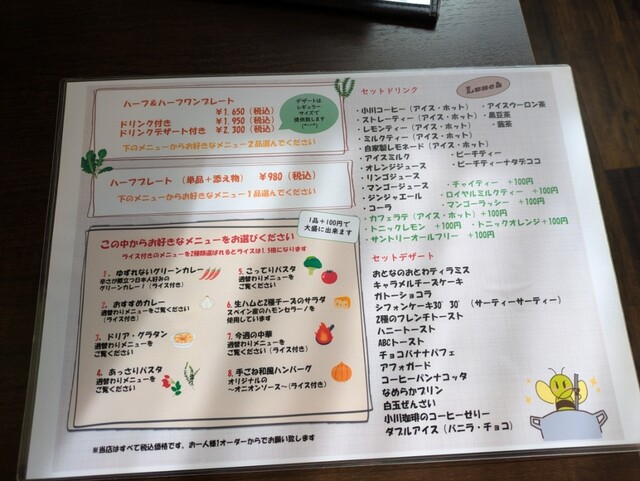 ハーフ&ハーフワンプレート
¥1,650（税込）
ドリンク付き ¥1,950（税込）
ドリンクデザート付き ¥2,300（税込）
下のメニューからお好きなメニュー2品選んでください
デザートは
レギュラー
サイズで
提供致します
(*^-^*)
ハーフプレート（単品+添え物） ¥980（税込）
下のメニューからお好きなメニュー1品選んでください
1品+100円で
大盛に出来ます
この中からお好きなメニューをお選びください
ライス付きのメニューを2種類選ばれるとライスは1.5倍になります
1. ゆずれないグリーンカレー
辛さが際立つ日本人好みの
グリーンカレー！（ライス付き）
2. おすすめカレー
週替わりメニューをご覧ください
（ライス付き）
3. ドリア・グラタン
週替わりメニューを
ご覧ください
4. あっさりパスタ
週替わりメニューを
ご覧ください
5. こってりパスタ
週替わりメニューを
ご覧ください
6. 生ハムと2種チーズのサラダ
スペイン産のハモンセラーノを
使用しています
7. 今週の中華
週替わりメニューを
ご覧ください（ライス付き）
8. 手ごね和風ハンバーグ
オリジナルの
～オニオンソース～（ライス付き）
※当店はすべて税込価格です。お一人様1オーダーからでお願い致します
Lunch
セットドリンク
・小川コーヒー（アイス・ホット）
・ストレーティー（アイス・ホット）
・レモンティー（アイス・ホット）
・ミルクティー（アイス・ホット）
・自家製レモネード（アイス・ホット）
・アイスミルク
・オレンジジュース
・リンゴジュース
・マンゴージュース
・ジンジャエール
・コーラ
・アイスウーロン茶
・黒豆茶
・ピーチティー
・ピーチティーナタデココ
・チャイティー +100円
・ロイヤルミルクティー +100円
・マンゴーラッシー +100円
・カフェラテ（アイス・ホット）+100円
・トニックレモン +100円 ・トニックオレンジ+100円
・サントリーオールフリー +100円
セットデザート
おとなのおとわティラミス
キャラメルチーズケーキ
ガトーショコラ
シフォンケーキ30´30´（サーティーサーティー）
2種のフレンチトースト
ハニートースト
ABCトースト
チョコバナナパフェ
アフォガード
コーヒーパンナコッタ
なめらかプリン
白玉ぜんざい
小川珈琲のコーヒーゼリー
ダブルアイス（バニラ・チョコ）